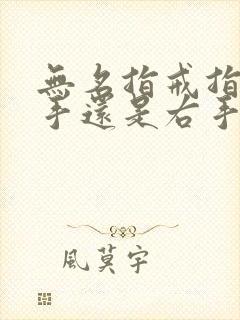 無名指戒指
手還是右手
風莫宇